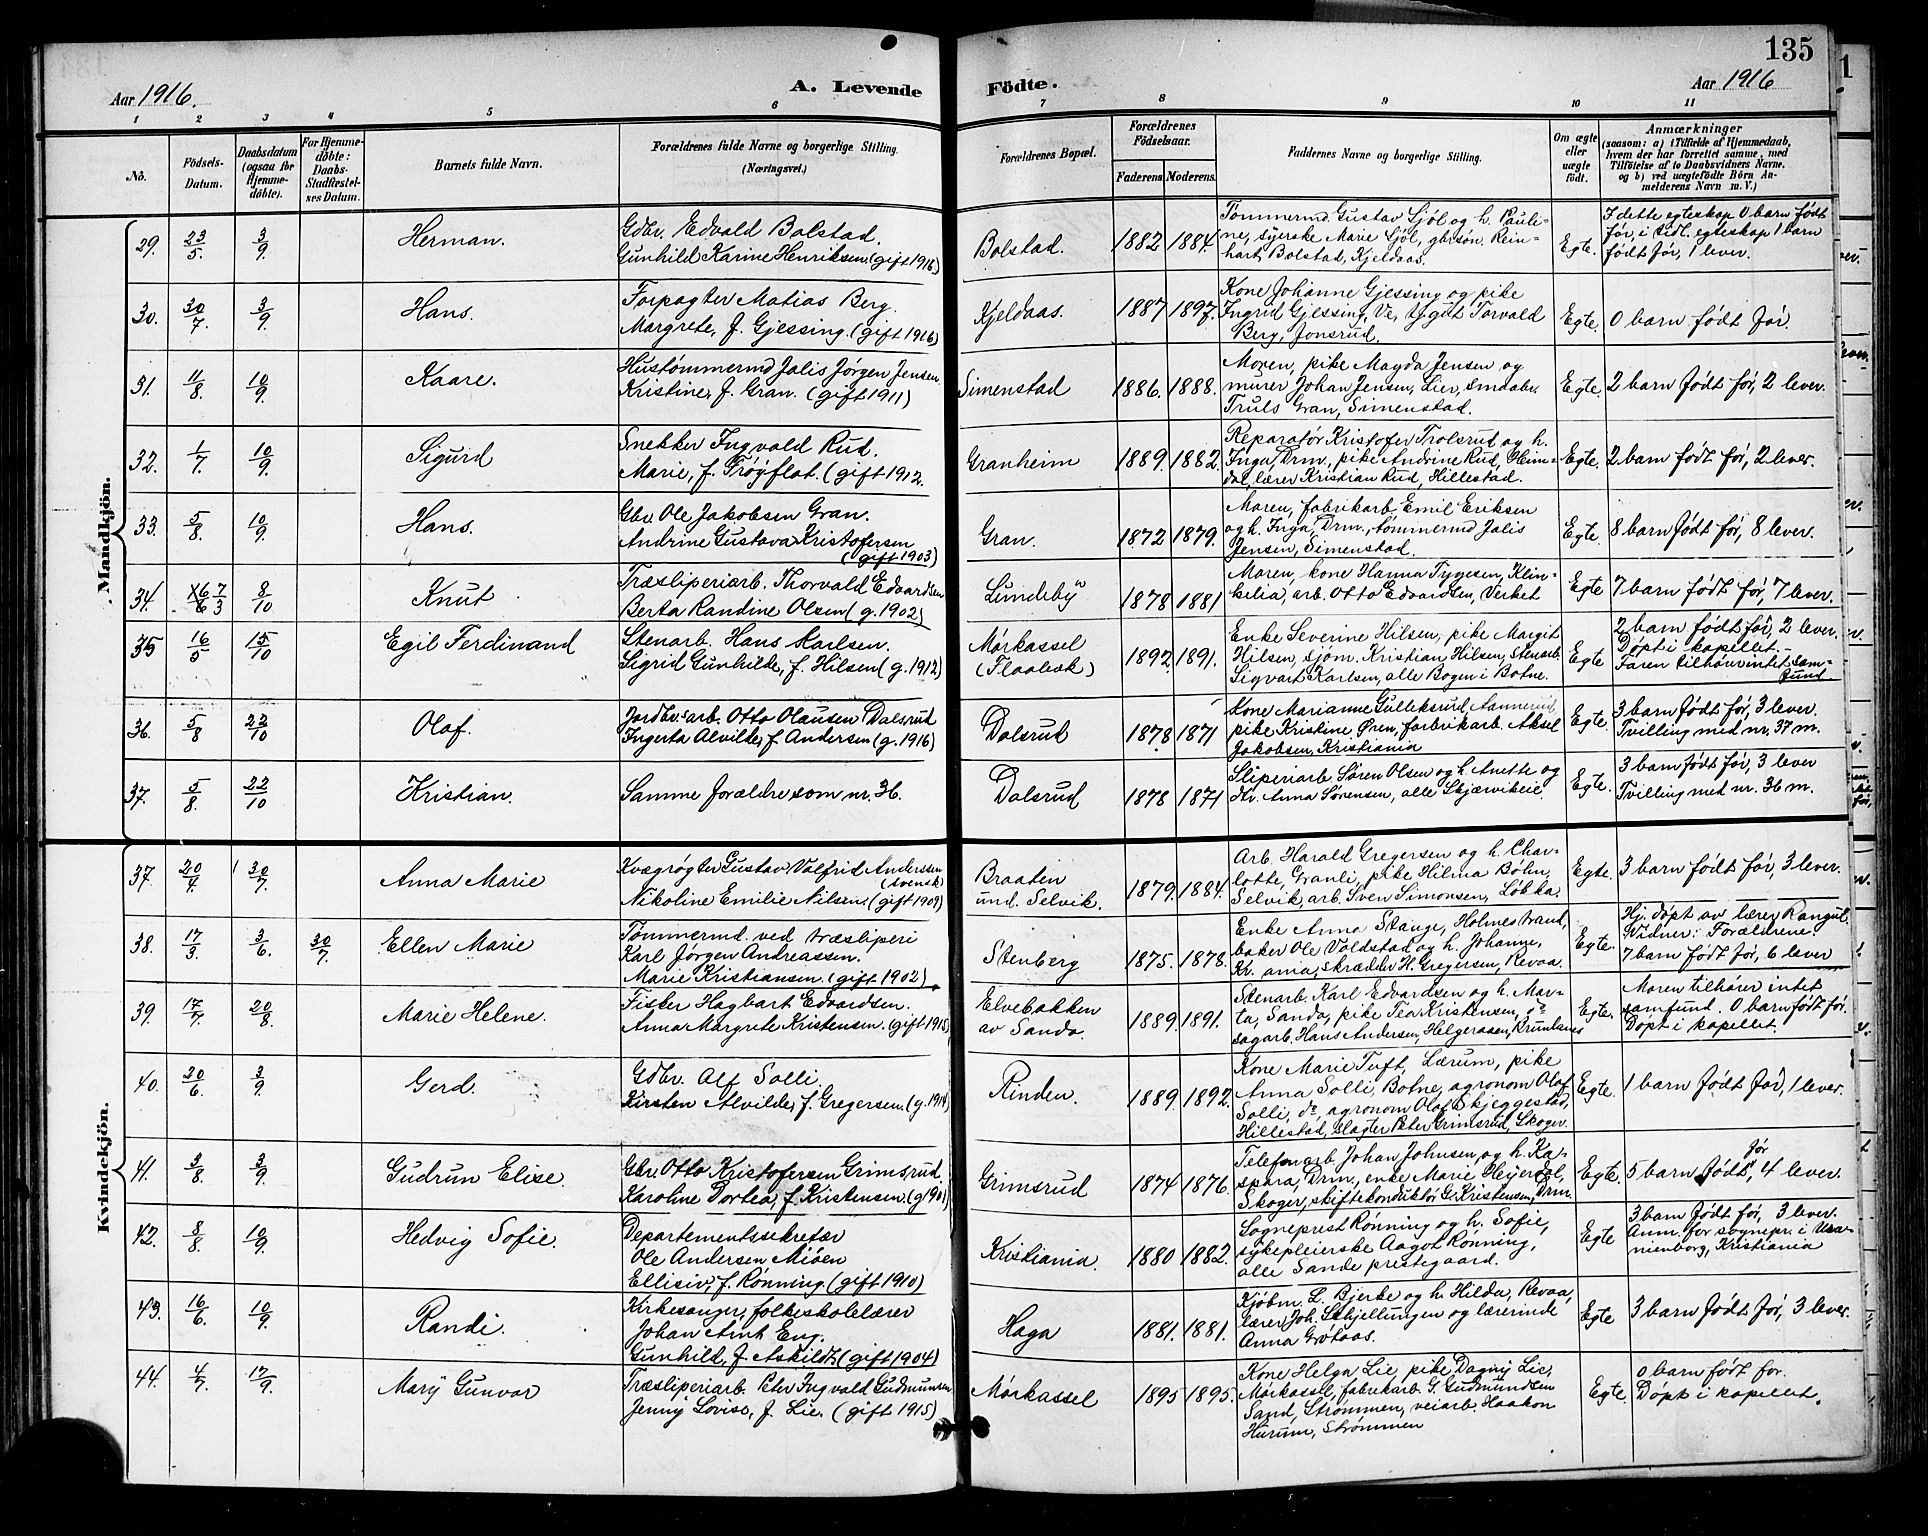 135
Aar 1916.
A. Levende
Födte.
Aar 1916
1 2 3 4 5 6 7 8 9 10 11
No.
Födsels-
Datum.
Daabsdatum
(ogsaa for
Hjemme-
döbte).
For Hjemme-
döbte:
Daabs-
Stadfæstel-
ses Datum.
Barnets fulde Navn.
Forældrenes fulde Navne og borgerlige Stilling.
(Næringsvei.)
Forældrenes Bopæl.
Forældrenes
Födselsaar.
Faderens.
Moderens.
Faddernes Navne og borgerlige Stilling.
Om ægte
eller
uægte
født.
Anmærkninger
(saasom: a) i Tilfælde af Hjemmedaab,
hvem der har forrettet samme, med
Tilföielse af to Daabsvidners Navne,
og b) ved uægtefödte Börn An-
melderens Navn m. V.)
Mandkjön.
29. 23/5 3/9 Herman.
Gdbr. Edvald Bolstad.
Gunhild Karine Henriksen. (gift 1916)
Bolstad. 1882 1884.
Tømmermd. Gustav Sjøl og h. Pauli-
ne, syerske Marie Sjøl, gbrsøn. Rein-
hart Bolstad, Kjeldaas.
Egte.
I dette egteskap 0 barn født
før, i tidl. egteskap 1 barn
født før, 1 lever.
30. 30/7. 3/9 Hans.
Forpagter Matias Berg.
Margrete, f. Gjessing. (gift 1916)
Kjeldaas. 1887 1897.
Kone Johanne Gjessing og pike
Ingrid Gjessing, Ve, ygut Torvald
Berg, Jonsrud.
Egte. 0 barn født før.
31. 11/8. 10/9 Kaare.
Hustømmermd Jalis Jørgen Jensen
Kristine, f. Gran. (gift 1911)
Simenstad 1886. 1888.
Moren, pike Magda Jensen og
murer Johan Jensen, Lier, smaabr.
Truls Gran, Simenstad.
Egte. 2 barn født før, 2 lever.
32. 1/7. 10/9 Sigurd
Snekker Ingvald Rud.
Marie, f. Trøyflat. (gift 1912.
Granheim 1889. 1882.
Reparatør Kristofer Trolsrud og h.
Inga, Drm., pike Andrine Rud, Heim-
dal, lærer Kristian Rud, Hillestad.
Egte. 2 barn født før, 2 lever.
33. 5/8 10/9. Hans.
Gbr. Ole Jakobsen Gran.
Andrine Gustava Kristofersen
(gift 1903)
Gran. 1872 1879.
Moren, fabrikarb. Emil Eriksen
og h. Inga, Drm., tømmermd Jalis
Jensen, Simenstad.
Egte. 8 barn født før, 8 lever.
34. 8/10 Knut
Træsliperiarb. Thorvald Edvardsen
Berta Randine Olsen (g. 1902)
Lundeby 1878 1881
Moren, kone Hanna Tygesen, Klin-
kelia, arb. Otto Edvardsen, Verket
Egte 7 barn født før, 7 lever.
35 16/5 15/10 Egil Ferdinand
Stenarb. Hans Karlsen.
Sigrid Gunhilde, f. Hilsen (g. 1912)
Mørkassel
1892. 1891.
Enke Severine Hilsen, pike Margit
Hilsen, sjøm. Kristian Hilsen, stenarb.
Sigvart Karlsen, alle Bogen i Botne.
Egte
2 barn født før, 2 lever.
Døpt i kapellet.
Faren tilhører intet sam-
fund
36. 5/8 22/10 Olaf.
Jordbr.arb. Otto Olausen Dalsrud
Ingerta Alvilde, f. Andersen (g. 1916)
Dalsrud 1878 1871
Kone Marianne Gulleksrud,
pike Kristine Øren, fabrikarb. Aksel
Jakobsen, Kristiania
Egte.
3 barn født før, 3 lever.
Tvilling med nr. 37 m.
37. 5/8. 22/10 Kristian.
Samme forældre som nr. 36.
Dalsrud 1878 1871
Sliperiarb. Søren Olsen og h. Anette og
dtr. Anna Sørensen, alle Skjærvikeie.
Egte.
3 barn født før, 3 lever
Tvilling med nr. 36 m.
Kvindekjön.
37. 20/4. 30/7. Anna Marie
Kvægrøgter Gustav Valfrid Anderssen
(svensk)
Nikoline Emilie Nilsen. (gift 1909)
Braaten
und. Selvik. 1879. 1884.
Arb. Harald Gregersen og h. Char-
lotte, Granli, pike Hilma Bøhn,
Selvik, arb. Sven Simonsen,
Egte. 3 barn født før, 3 lever.
38. 17/3. 3/6. 30/7. Ellen Marie
Tømmermd. ved træsliperi
Karl Jørgen Andreassen.
Marie Kristiansen. (gift 1902)
Stenberg 1875. 1878.
Enke Anna Stange, Holmestrand,
baker Ole Valdstad og h. Johanne,
Kr.ania, skrædder H. Gregersen, Revaa.
Egte.
Hj. døpt av lærer Rangul.
Vidner: Forældrene.
7 barn født før, 6 lever
39. 17/7. 20/8. Marie Helene.
Fisker Hagbart Edvardsen.
Anna Margrete Kristensen. (gift 1915)
Elvebakken
av Sando. 1889. 1891.
Stenarb. Karl Edvardsen og h. Mar-
ta, Sanda, pike Tea Kristensen, do
sagarb. Hans Andersen, Helgeraaen, Brunlanes
Egte.
Moren tilhører intet
samfund. 0 barn født før.
Døpt i kapellet.
40. 20/6. 3/9 Gerd.
Gdbr. Alf Solli.
Kirsten Alvilde, f. Gregersen. (g. 1914)
Rinden. 1889. 1892.
Kone Marie Tuft, Lærum, pike
Anna Solli, Botne, agronom Olaf
Solli, do, agronom Olaf Skjeggestad,
Hillestad, slagter Peter Grimsrud, Skoger.
Egte. 1 barn født før, 1 lever.
41. 3/8. 3/9. Gudrun Elise.
Gbr. Otto Kristofersen Grimsrud.
Karoline Dortea, f. Kristensen. (g 190
Grimsrud 1874 1876.
Telefonarb. Johan Johnsen og h. Ka-
spara, Drm, enke Marie Heyerdal,
Skoger, skiftekonduktør G. Kristensen, Drm.
Egte. 5 barn født før, 4 lever.
42. 8/8. 10/9. Hedvig Sofie.
Departementssekretær
Ole Andersen Miøen
Ellisiv, f. Rønning. (gift 1910)
Kristiania. 1880 1882.
Sogneprest Rønning og h. Sofie,
sykepleierske Aagot Rønning,
alle Sande prestegaard.
Egte
3 barn født før, 3 lever.
Anm. for sognepr. i Ura-
nienborg, Kristiania
43. 16/6. 10/9. Randi.
Kirkesanger, folkeskolelærer
Johan Arnt Eng.
Gunhild, f. Askildt. (gift 1904)
Haga 1881. 1881.
Kjøbm. L. Bjerke og h. Hilda, Revaa,
lærer Joh. Skjellungen og lærerinde
Anna Grøtaas.
Egte 3 barn født før, 3 lever.
44. 4/7. 17/9. Mary Gunvor
Træsliperiarb. Peter Ingvald Gudmunsen
Jenny Lovise, f. Lie. (gift 1915)
Mørkassel 1895 1895.
Kone Helga Lie, pike Dagny Lie,
Mørkassel, fabrikarb. G. Gudmundsen
Sand, Strømmen, veiarb. Haakon
Hurum, Strømmen
Egte.
0 barn født før.
Døpt i kapellet.